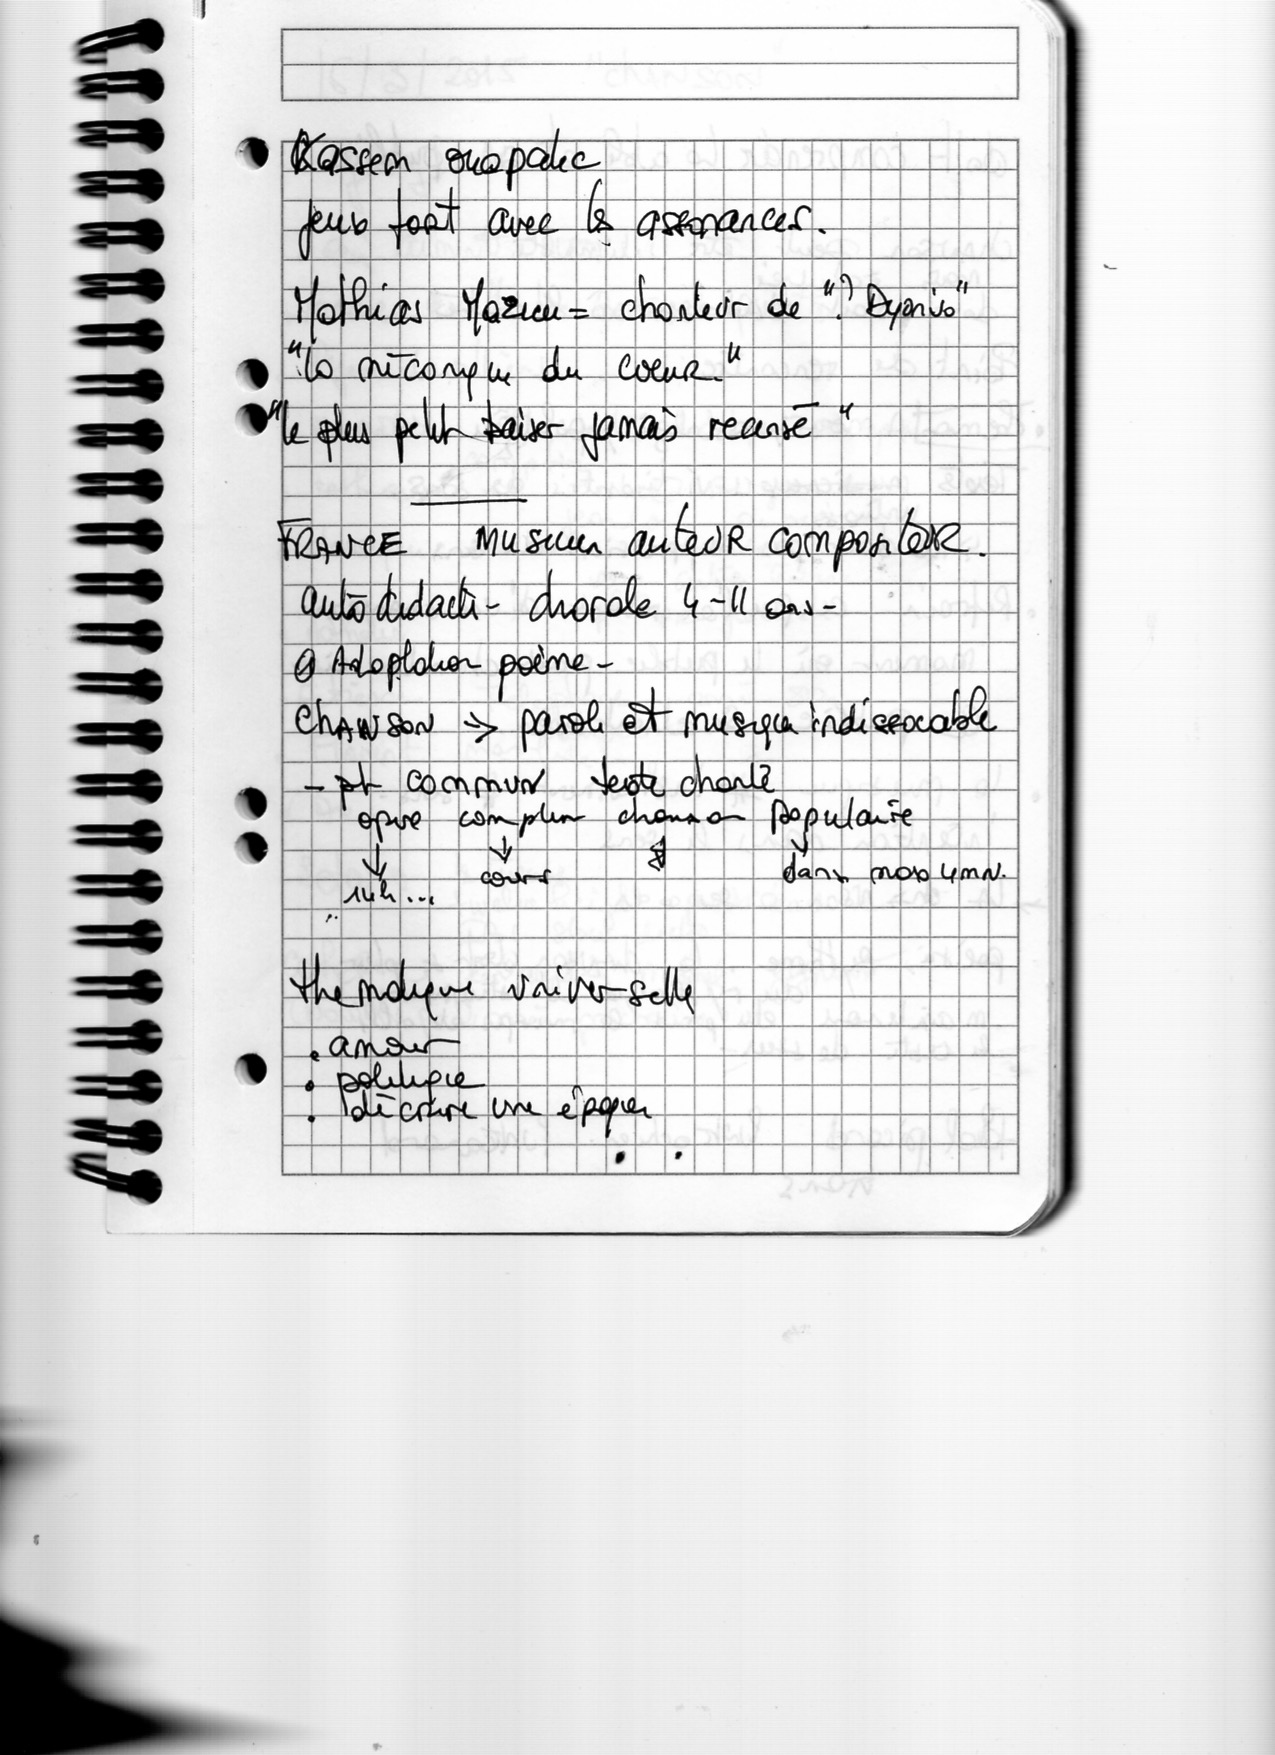 Kassem
jeux fort avec les assonances.
Mathias Mazieu = chanteur de "? Dyonis"
"la mécanique du coeur."
"le plus petit baiser jamais recensé"
FRANCE musicien auteur compositeur.
autodidacte - chorale 4-11 ans -
Adaptation poème -
CHANSON => parole et musique indissociable
- pt commun texte chanté
chanson populaire
cours dans max 4mn.
14h...
thematique universelle
. amour
. politique
. décrire une époque